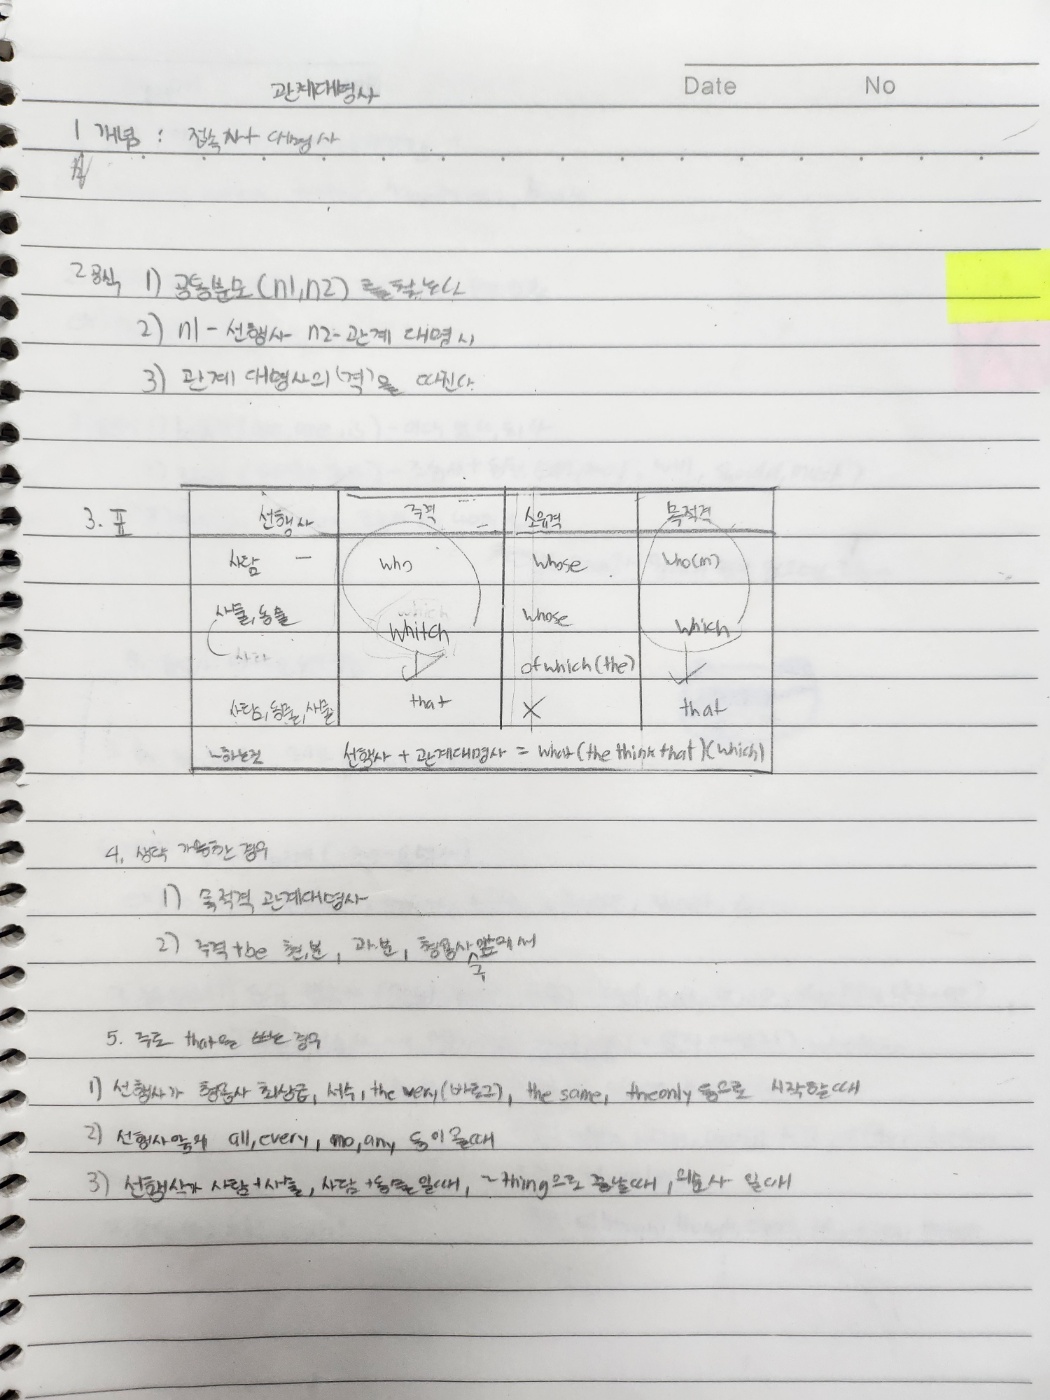 Date No
관계대명사
1 개념 : 접속사+ 대명사
2 공식 1) 공통분모(n1,n2) 를 찾는다
2) n1 - 선행사 n2-관계 대명사
3) 관계 대명사의 (격)을 따진다.
3. 표
선행사 주격 소유격 목적격
사람 who whose who(m)
사물,동물 whitch whose which
of which (the)
사람,동물,사물 that X that
~하는것 선행사 + 관계대명사 = what (the think that)(which)
4. 생략 가능한 경우
1) 목적격 관계대명사
2) 주격+be 현.분, 과.분, 형용사구 앞에서
5. 주로 that을 쓰는 경우
1) 선행사가 형용사 최상급, 서수, the very(바로그), the same, the only 등으로 시작할때
2) 선행사앞에 all, every, no, any 등이 올때
3) 선행사가 사람+사물, 사람+동물일때, ~thing으로 끝날때, 의문사 일때